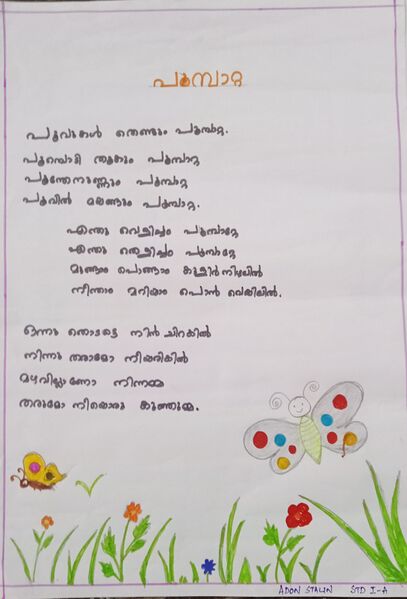 പൂമ്പാറ്റ
പൂവുകൾ തെണ്ടും പൂമ്പാറ്റ.
പൂമ്പൊടി തൂകും പൂമ്പാറ്റ
പൂന്തേനുണ്ണും പൂമ്പാറ്റ
പൂവിൻ മലങ്ങും പൂമ്പാറ്റ.
എന്തു വെളിച്ചം പൂമ്പാറ്റേ
എന്തു തെളിച്ചം പൂമ്പാറ്റേ
മുങ്ങാം പൊങ്ങാം കുളിർ നിഴലിൽ
നീന്താം മറിയാം പൊൻ വെയിലിൽ.
ഒന്നു തൊടട്ടെ നിൻ ചിറകിൽ
നിന്നു തരാമോ നീയരികിൽ
മഴവില്ലാണോ നിന്നമ്മ
തരുമോ നീയൊരു കുഞ്ഞുമ്മ.
ADON STALIN STD I-A